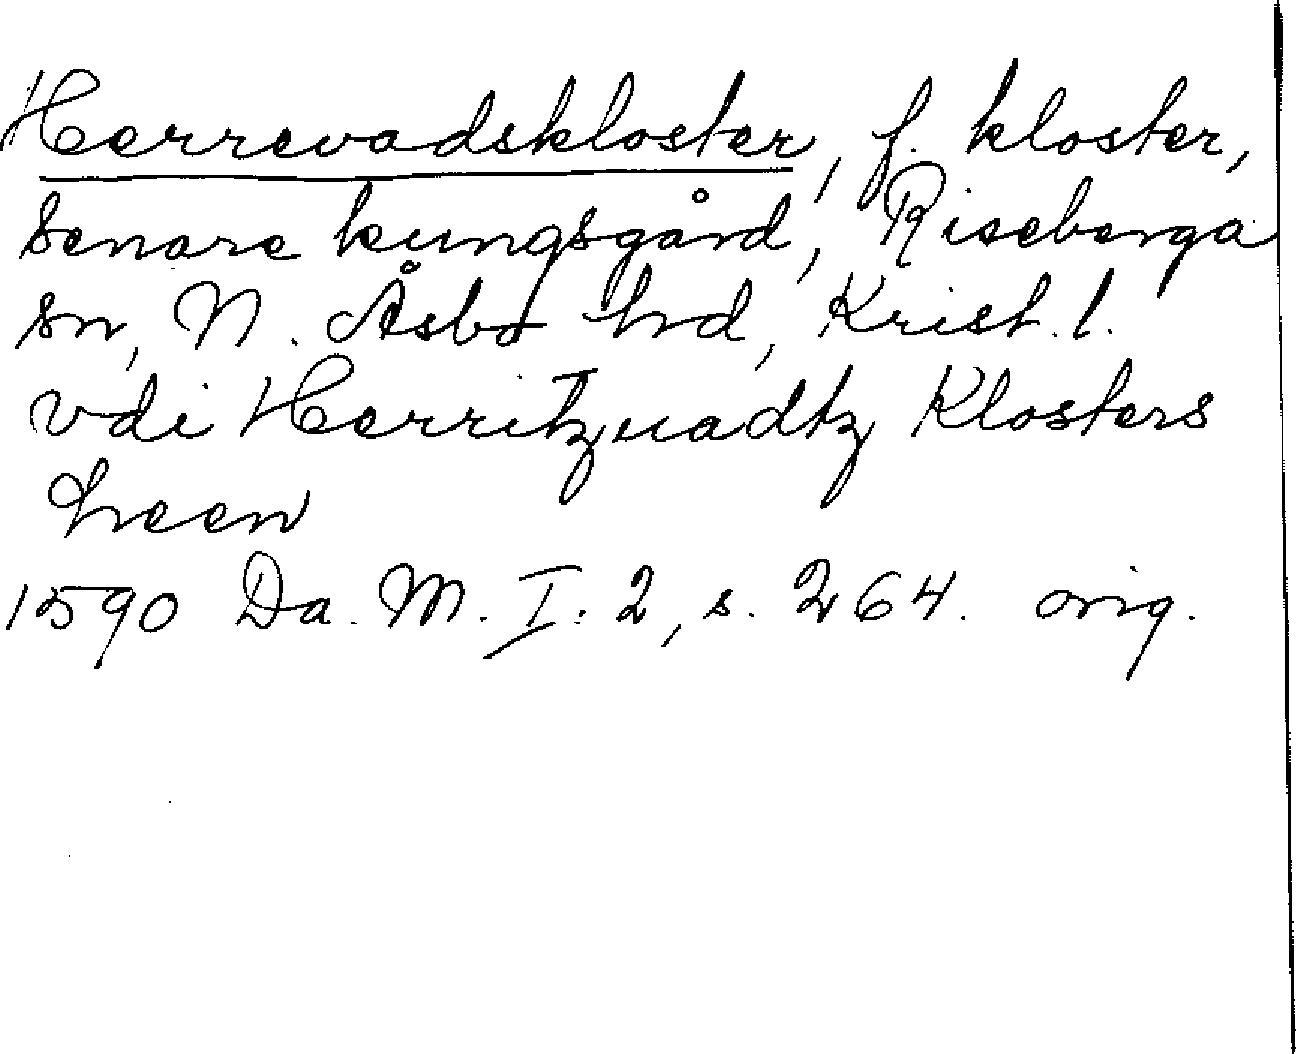 Herrevadskloster, f. kloster,
senare kungsgård, Riseberga
sn, N. Åsbo hd, Krist. l.
vdi Herritzuadtz Klosters
leen
1590 Da. M. I: 2, s. 264. orig.